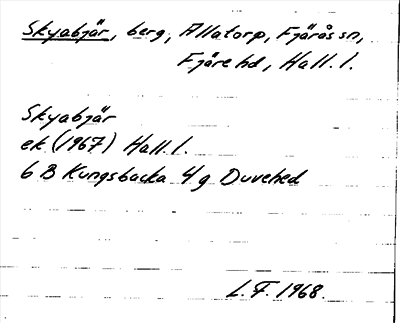 Skyabjär, berg, Allatorp, Fjärås sn,
Fjäre hd, Hall. l.
Skyabjär
ek (1967) Hall. l.
6 B Kungsbacka 4 g Duvehed
L. F. 1968.